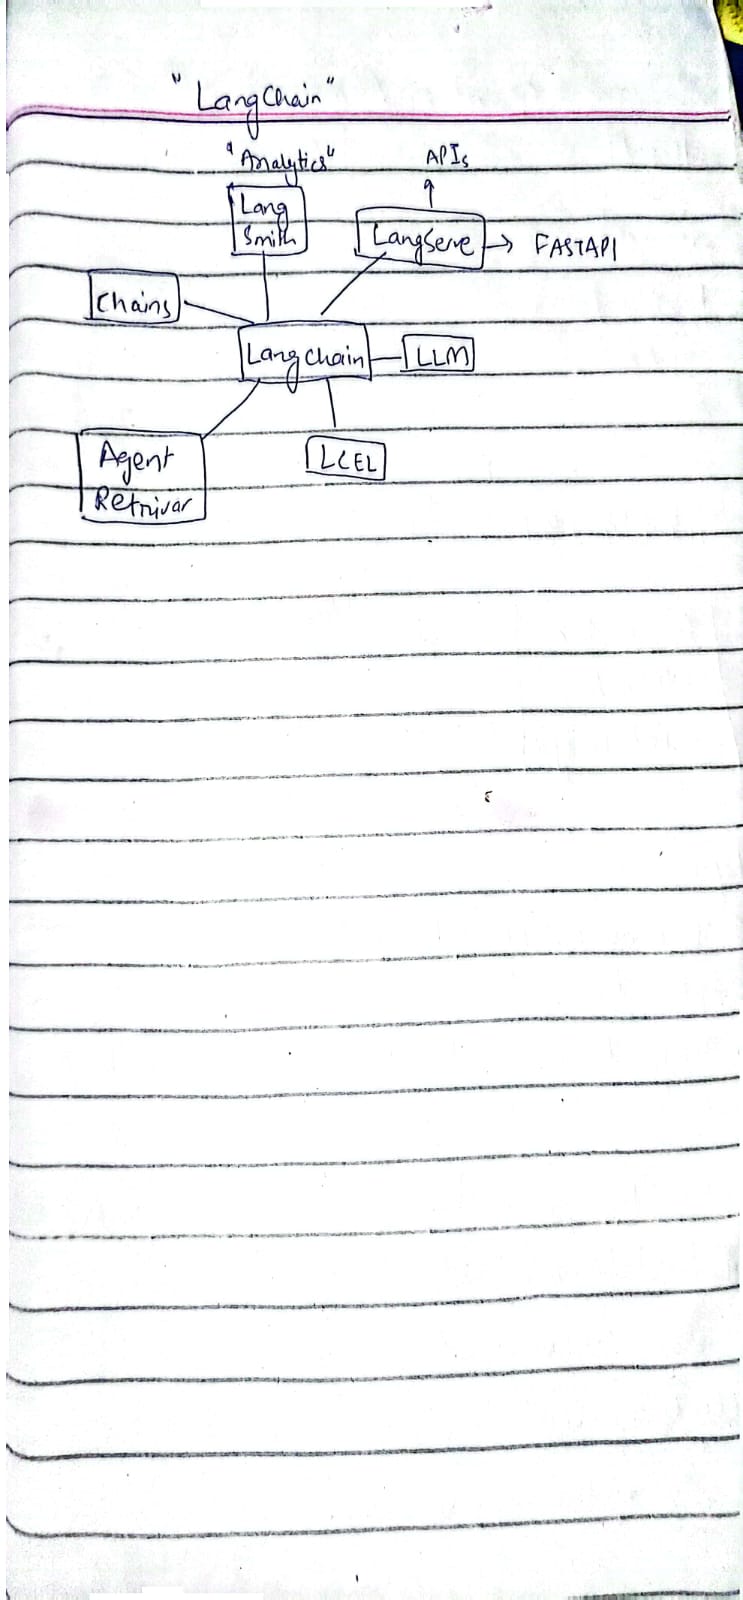 "LangChain"
"Analytics"
APIs
Lang
Smith
LangServe → FASTAPI
Chains
Langchain
LLM
Agent
Retrivar
LCEL